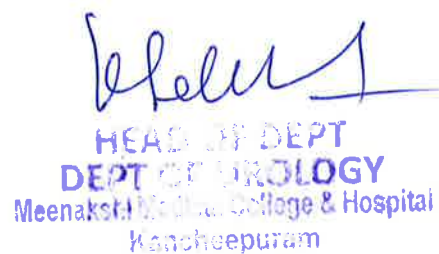 HEAD OF DEPT
DEPT OF UROLOGY
Meenakshi Medical College & Hospital
Kancheepuram